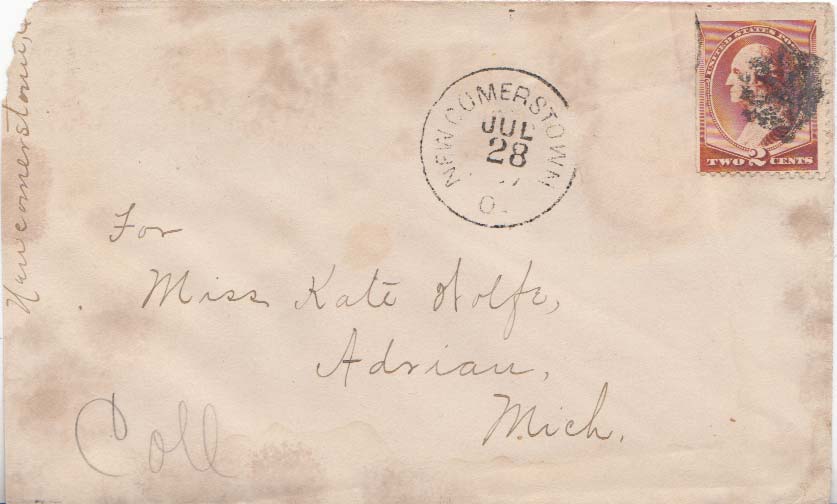 Newcomerstown,
NEWCOMERSTOWN
JUL
28
O.
UNITED STATES POS
TWO 2 CENTS
For
Miss Kate Wolfe,
Adrian,
Mich.
Coll